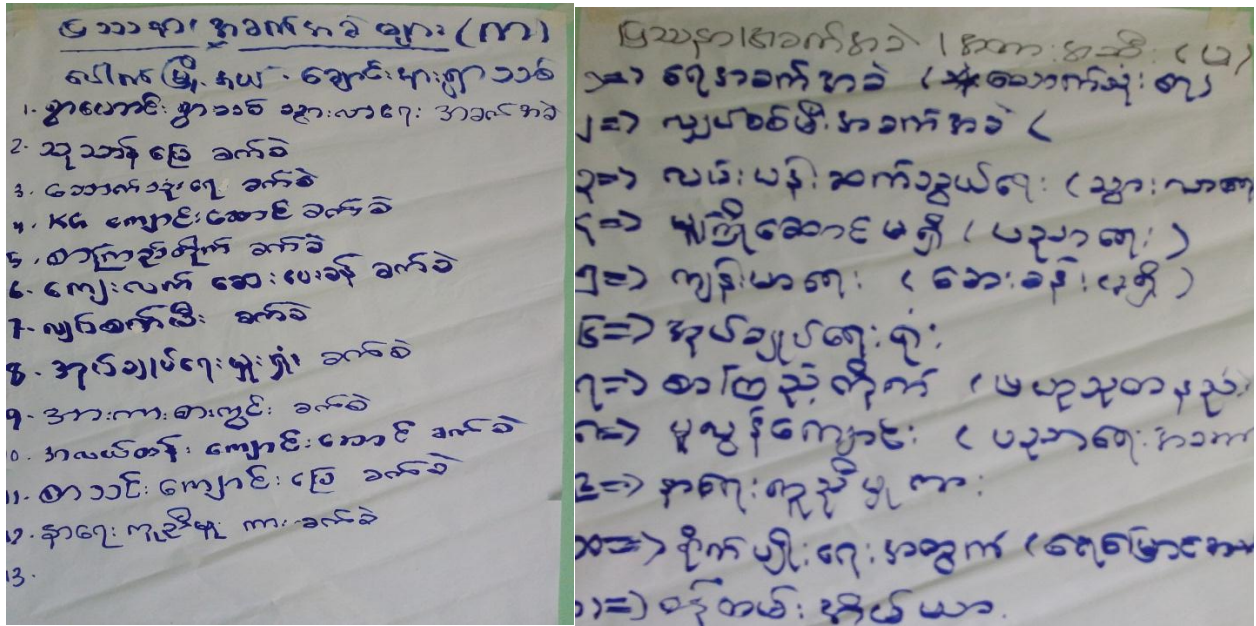 ပြဿနာ အခက်အခဲ များ (ကာ)
ပေါက်မြို့နယ် - ချောင်းဖျားရွာသစ်
1. ရွာဟောင်း ရွာသစ် သွားလာရေး အခက်အခဲ
2. သုသာန်မြေ ခက်ခဲ
3. သောက်သုံးရေ ခက်ခဲ
4. KG ကျောင်းဆောင် ခက်ခဲ
5. စာကြည့်တိုက် ခက်ခဲ
6. ကျေးလက် ဆေးပေးခန်း ခက်ခဲ
7. လျှပ်စစ်မီး ခက်ခဲ
8. အုပ်ချုပ်ရေးမှူးရုံး ခက်ခဲ
9. အားကစားကွင်း ခက်ခဲ
10. အလယ်တန်း ကျောင်းဆောင် ခက်ခဲ
11. စာသင်ကျောင်းမြေ ခက်ခဲ
12. နာရေးကူညီမှု ကား ခက်ခဲ
13.
ပြဿနာ/အခက်အခဲ / အတားအဆီး (မ)
၁=> ရေအခက်အခဲ (သောက်သုံးရေ)
၂=> လျှပ်စစ်မီးအခက်အခဲ (
၃=> လမ်းပန်းဆက်သွယ်ရေး (သွားလာရေး
၄=> မူကြိုဆောင်မရှိ (ပညာရေး)
၅=> ကျန်းမာရေး (ဆေးခန်းမရှိ)
၆=> အုပ်ချုပ်ရေးရုံး
၇=> စာကြည့်တိုက် (ဗဟုသုတနည်း
၈=> မူလွန်ကျောင်း (ပညာရေးအခက်
၉=> နာရေးကူညီမှုကား
၁၀=> စိုက်ပျိုးရေးအတွက် (ရေမြောင်း
၁၁=>